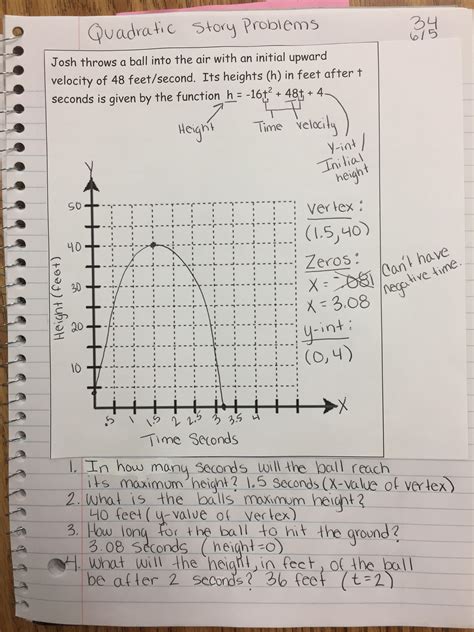 Quadratic Story Problems
34
6/5
Josh throws a ball into the air with an initial upward
velocity of 48 feet/second. Its heights (h) in feet after t
seconds is given by the function h = -16t² + 48t + 4
Height
Time
velocity
y-int/
Initial
height
Y
50
40
30
20
10
Height (feet)
.5 1 1.5 2 2.5 3 3.5 4
X
Time Seconds
Vertex:
(1.5, 40)
Zeros:
X = -.081
X = 3.08
Can't have
negative time.
y-int:
(0, 4)
1. In how many seconds will the ball reach
its maximum height? 1.5 seconds (X-value of vertex)
2. What is the balls maximum height?
40 feet (y-value of vertex)
3. How long for the ball to hit the ground?
3.08 seconds (height=0)
4. What will the height, in feet, of the ball
be after 2 seconds? 36 feet (t=2)